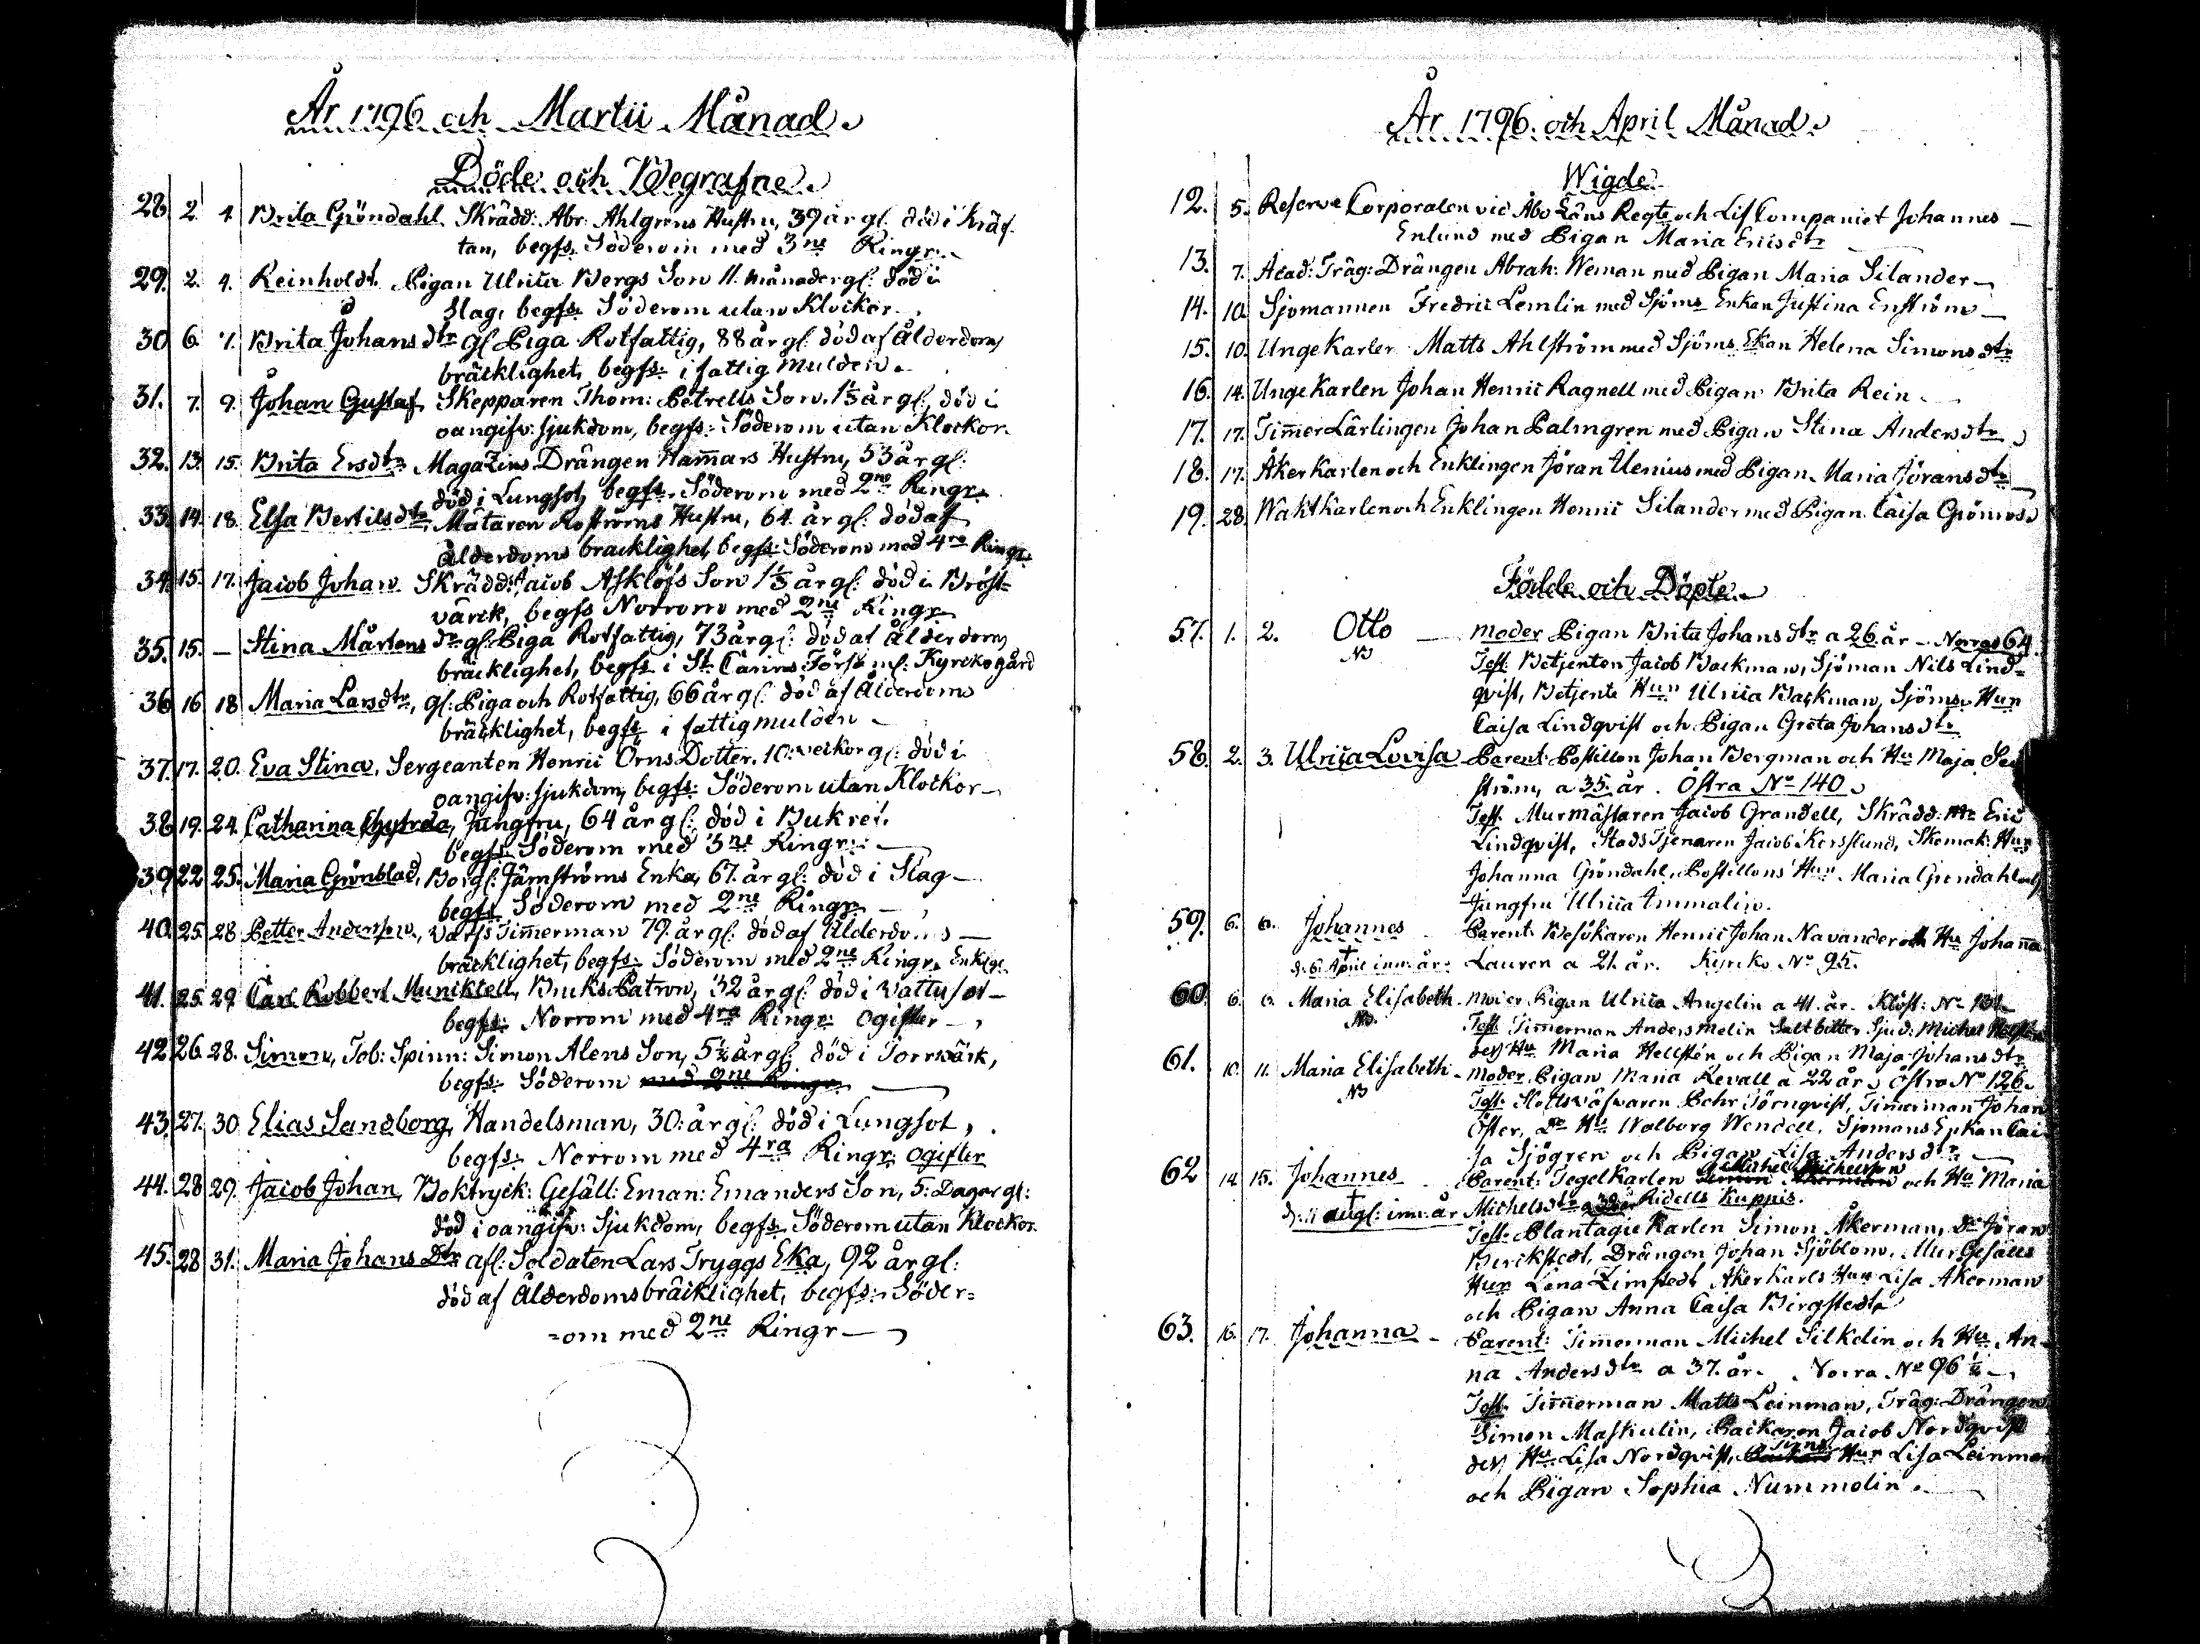 År 1796 och Martii Månad.
Döde och Begrafne.
28. 2. 4. Brita Gröndahl Skrädd: Abr. Ahlgrens Hustru, 39 år gl. död i Kräf-
tan, begfs. Söderom med 3ne Ringr.
29. 2. 4. Reinholdt Pigan Ulrica Bergs Son 11. månader gl: död i
Slag, begfs. Söderom utan Klockor.
30 6. 7. Brita Johansdtr gl Piga Rotfattig, 88 år gl: död af Ålderdoms
bräcklighet, begfs: i fattig Mulden.
31. 7. 9. Johan Gustaf Skepparen Thom: Petrells Son, 1½ år gl: död i
oangifv: sjukdom, begfs: Söderom utan Klockor.
32. 13. 15. Brita Ersdtr Magazins Drängen Hamars Hustru, 53 år gl:
död i Lungsot, begfs. Söderom med 2ne Ringr.
33. 14. 18. Elsa Bertilsdtr, Mätaren Roströms Hustru, 64. år gl: död af
Ålderdoms bräcklighet, begfs: Söderom med 4ra Ringr.
34. 15. 17. Jacob Johan Skrädd: Jacob Asklöfs Son 1½ år gl: död i Bröst-
värck, begfs Norrom med 2ne Ringr.
35. 15. — Stina Mårtens dr gl: Piga Rotfattig, 73 år gl: död af Ålderdoms
bräcklighet, begfs. i St. Carins Förs: ml: Kyrckogård
36 16 18 Maria Larsdtr, gl: Piga och Rotfattig, 66 år gl: död af Ålderdoms
bräcklighet, begfs. i fattigmulden
37. 17. 20. Eva Stina, Sergeanten Henric Örns Dotter, 10. veckor gl: död i
oangifv: sjukdom, begfs: Söderom utan Klockor
38 19. 24. Catharina, Jungfru, 64 år gl: död i Bukref.
begfs. Söderom med 3ne Ringr.
39. 22 25. Maria Grönblad, Borgl: Järnströms Enka, 67. år gl: död i Slag
begfs. Söderom med 2ne Ringr
40. 25 28 Petter Andersson, Varfs Timerman 79. år gl: död af Ålderdoms
bräcklighet, begfs: Söderom med 2ne Ringr. Enkl.
41. 25 29 Carl Robbert Muniktell, Bruks Patron, 32 år gl: död i Vattusot
begfs: Norrom med 4ra Ringr: Ogifter
42 26. 28. Simon, Tob: Spinn: Simon Alens Son, 5½ år gl: död i Torrwärk,
begfs: Söderom med 2ne Ringr.
43. 27. 30 Elias Sandborg, Handelsman, 30: år gl: död i Lungsot,
begfs. Norrom med 4ra Ringr. Ogifter
44. 28 29. Jacob Johan, Boktryck: Gesäll: Eman: Emanders Son, 5. Dagar gl:
död i oangifv: Sjukdom, begfs. Söderom utan Klockor.
45. 28 31. Maria Johans Dtr afl: Soldaten Lars Tryggs Eka, 92 år gl:
död af Ålderdoms bräcklighet, begfs. Söder=
=om med 2ne Ringr
År 1796. och April Månad.
Wigde
12. 5. Reserve Corporalen vid Åbo Läns Regte och Lif Compagniet Johannes
Enlund med Pigan Maria Ericsdtr
13. 7. Acad: Träg: Drängen Abrah: Weman med Pigan Maria Silander
14. 10. Sjömannen Fredric Lemlin med Sjöms Enkan Justina Enström
15. 10. Unge Karlen Matts Ahlström med Sjöms. Ekan Helena Simonsdtr
16. 14. Unge Karlen Johan Henric Ragnell med Pigan Brita Rein
17. 17. Timer Lärlingen Johan Palmgren med Pigan Stina Andersdtr
18. 17. Åker Karlen och Enklingen Jöran Ulenius med Pigan Maria Jöransdtr
19. 28. Wakt Karlen och Enklingen Henric Silander med Pigan Caisa Grönroos
Födde och Döpte
57. 1. 2. Otto — Moder Pigan Brita Johansdtr a 26 år — Norra 64.
Test: Betjenten Jacob Backman, Sjöman Nils Lind-
qvist, Betjente Hun Ulrica Backman, Sjöms. Hun
Caisa Lindqvist och Pigan Greta Johansdtr
58. 2. 3. Ulrica Lovisa Parent: Postillon Johan Bergman och Hu Maja
ström, a 35. år. Östra No 140
Test. Murmästaren Jacob Grandell, Skrädd: Mr Eric
Lindqvist, Stads Tjenaren Jacob Korsslund, Skomak: Hun
Johanna Gröndahl, Postillons Hun Maria Gröndahl och
Jungfru Ulrica Ammalin.
59. 6. 6. Johannes Parent: Besökaren Henric Johan Navander och Hu Johanna
d: 6. April inn: år: Lauren a 21. år. Kyrko No 95.
60. 6. 6. Maria Elisabeth. Moder Pigan Ulrica Angelin a 41. år. Klöst: No 131
Test Timerman Anders Melin Saltbitter Sjud: Michel
des Hu Maria Hellstén och Pigan Maja Johansdtr
61. 10. 11. Maria Elisabeth Moder Pigan Maria Revall a 22 år. Östra No 126.
Test. Slottsväfvaren Pehr Törnqvist, Timerman Johan
Öster, Dr Hu Walborg Wendell, Sjömans Enkan Cai-
sa Sjögren och Pigan Lisa Andersdtr
62 14 15. Johannes Parent: Tegelkarlen Michel Michelsson och Hu Maria
d: 11 augl: inn: år Michelsdtr Ridells Kuppis.
Test. Plantagie Karlen Simon Åkerman, dr Jöran
Berikstedt, Drängen Johan Sjöblom, Mur Gesälls
Hun Lena Zimstedt Åker Karls Hun Lisa Åkerman
och Pigan Anna Caisa Birgstedt
63. 16. 17. Johanna — Parent: Timerman Michel Silkelin och Hu An-
na Andersdtr a 37. år. Norra No 96½
Test. Timerman Matts Leinman, Träg: Drängen
Simon Maskulin, Backaren Jacob Nordqvist
des Hu Lisa Nordqvist, Hun Lisa Leinman
och Pigan Sophia Nummelin.